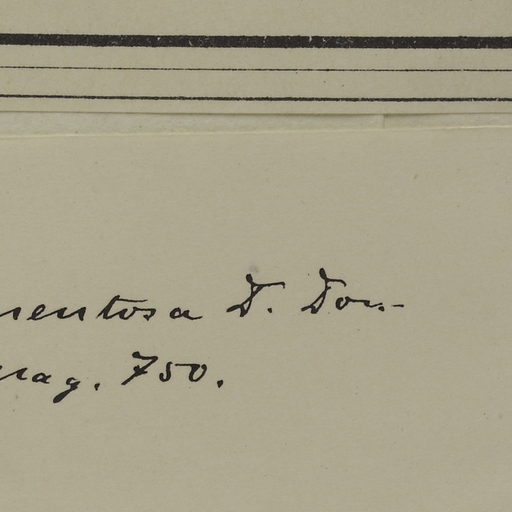 mentosa D. Don.-
rag. 750.